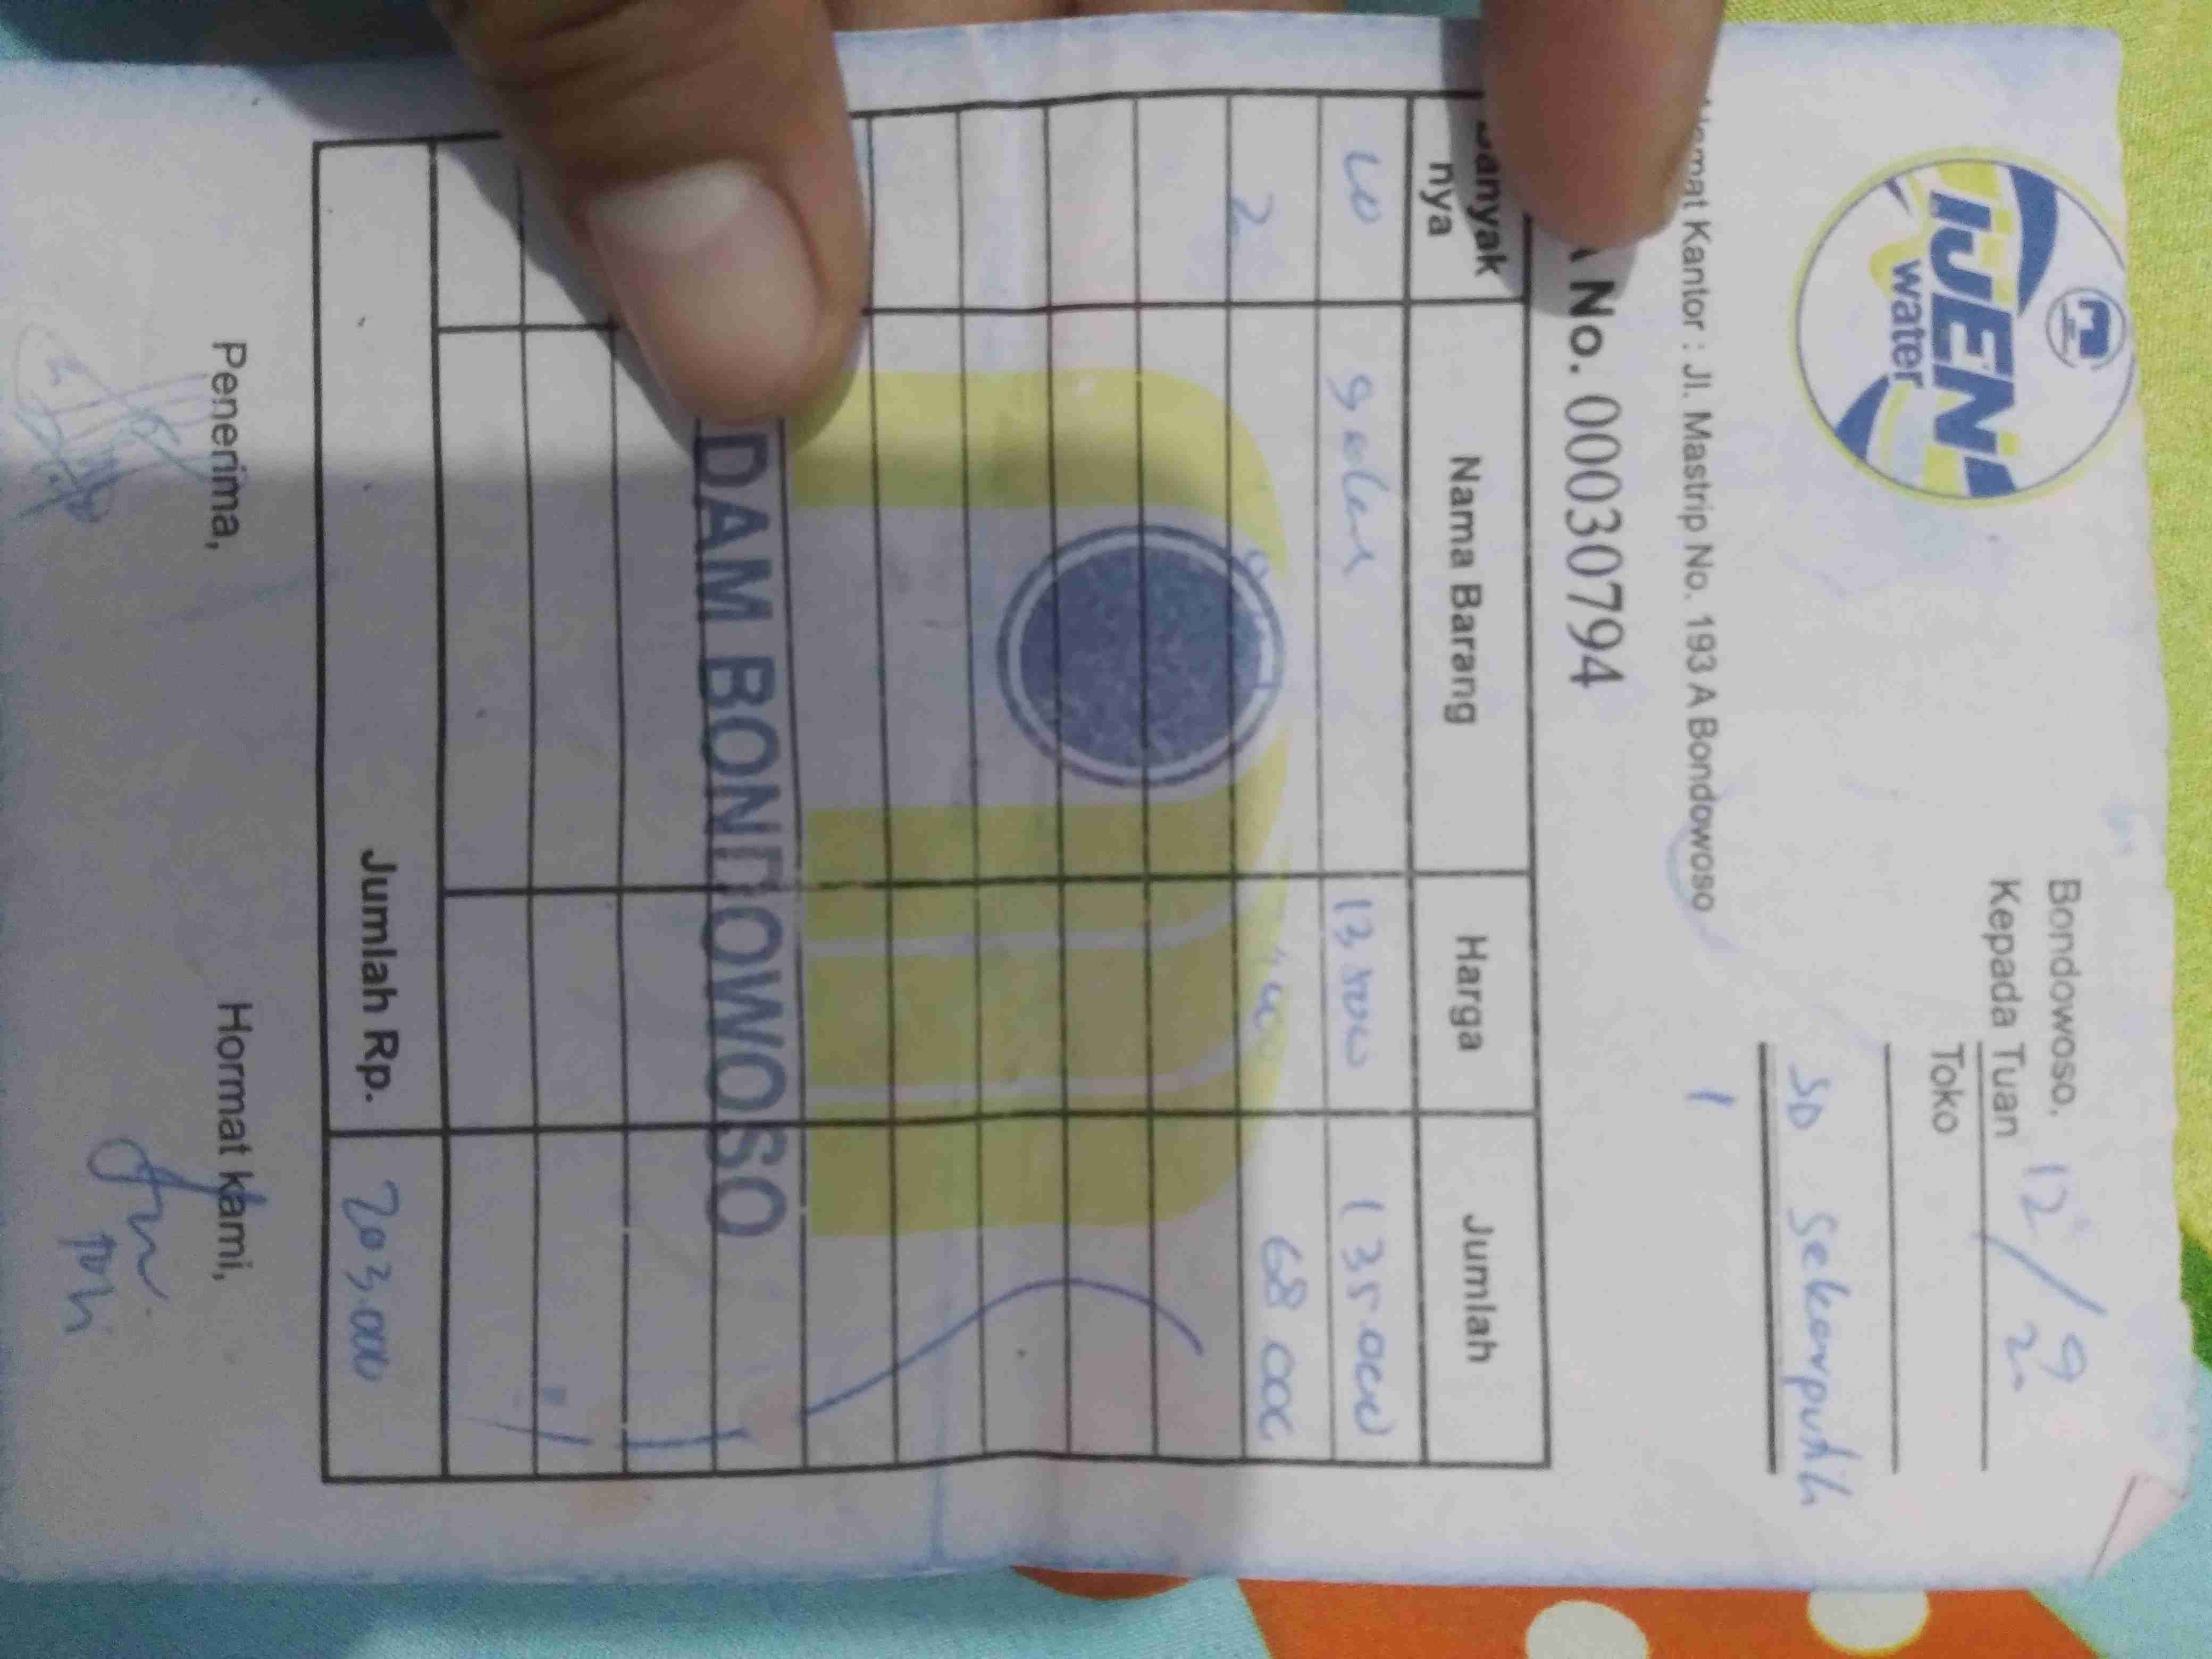 IJEN
water
Bondowoso, 12/9
Kepada Tuan
Toko
SD Sekarputih
Alamat Kantor : Jl. Mastrip No. 193 A Bondowoso
No. 00030794
Banyak nya Nama Barang Harga Jumlah
10 galon 13.500 135.000
2 68.000
DAM BONDOWOSO
Jumlah Rp. 203.000
Penerima, Hormat kami,